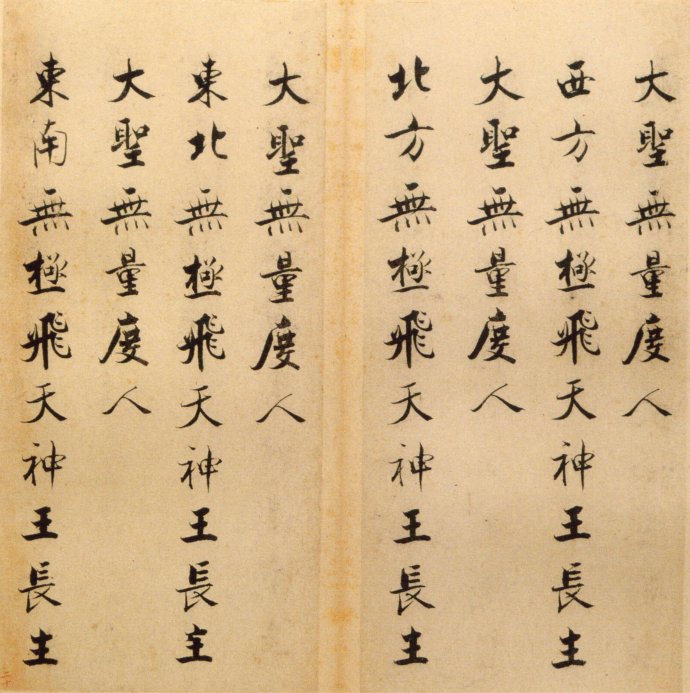 大聖無量度人
西方無極飛天神王長主
大聖無量度人
北方無極飛天神王長主
大聖無量度人
東北無極飛天神王長主
大聖無量度人
東南無極飛天神王長主
二十